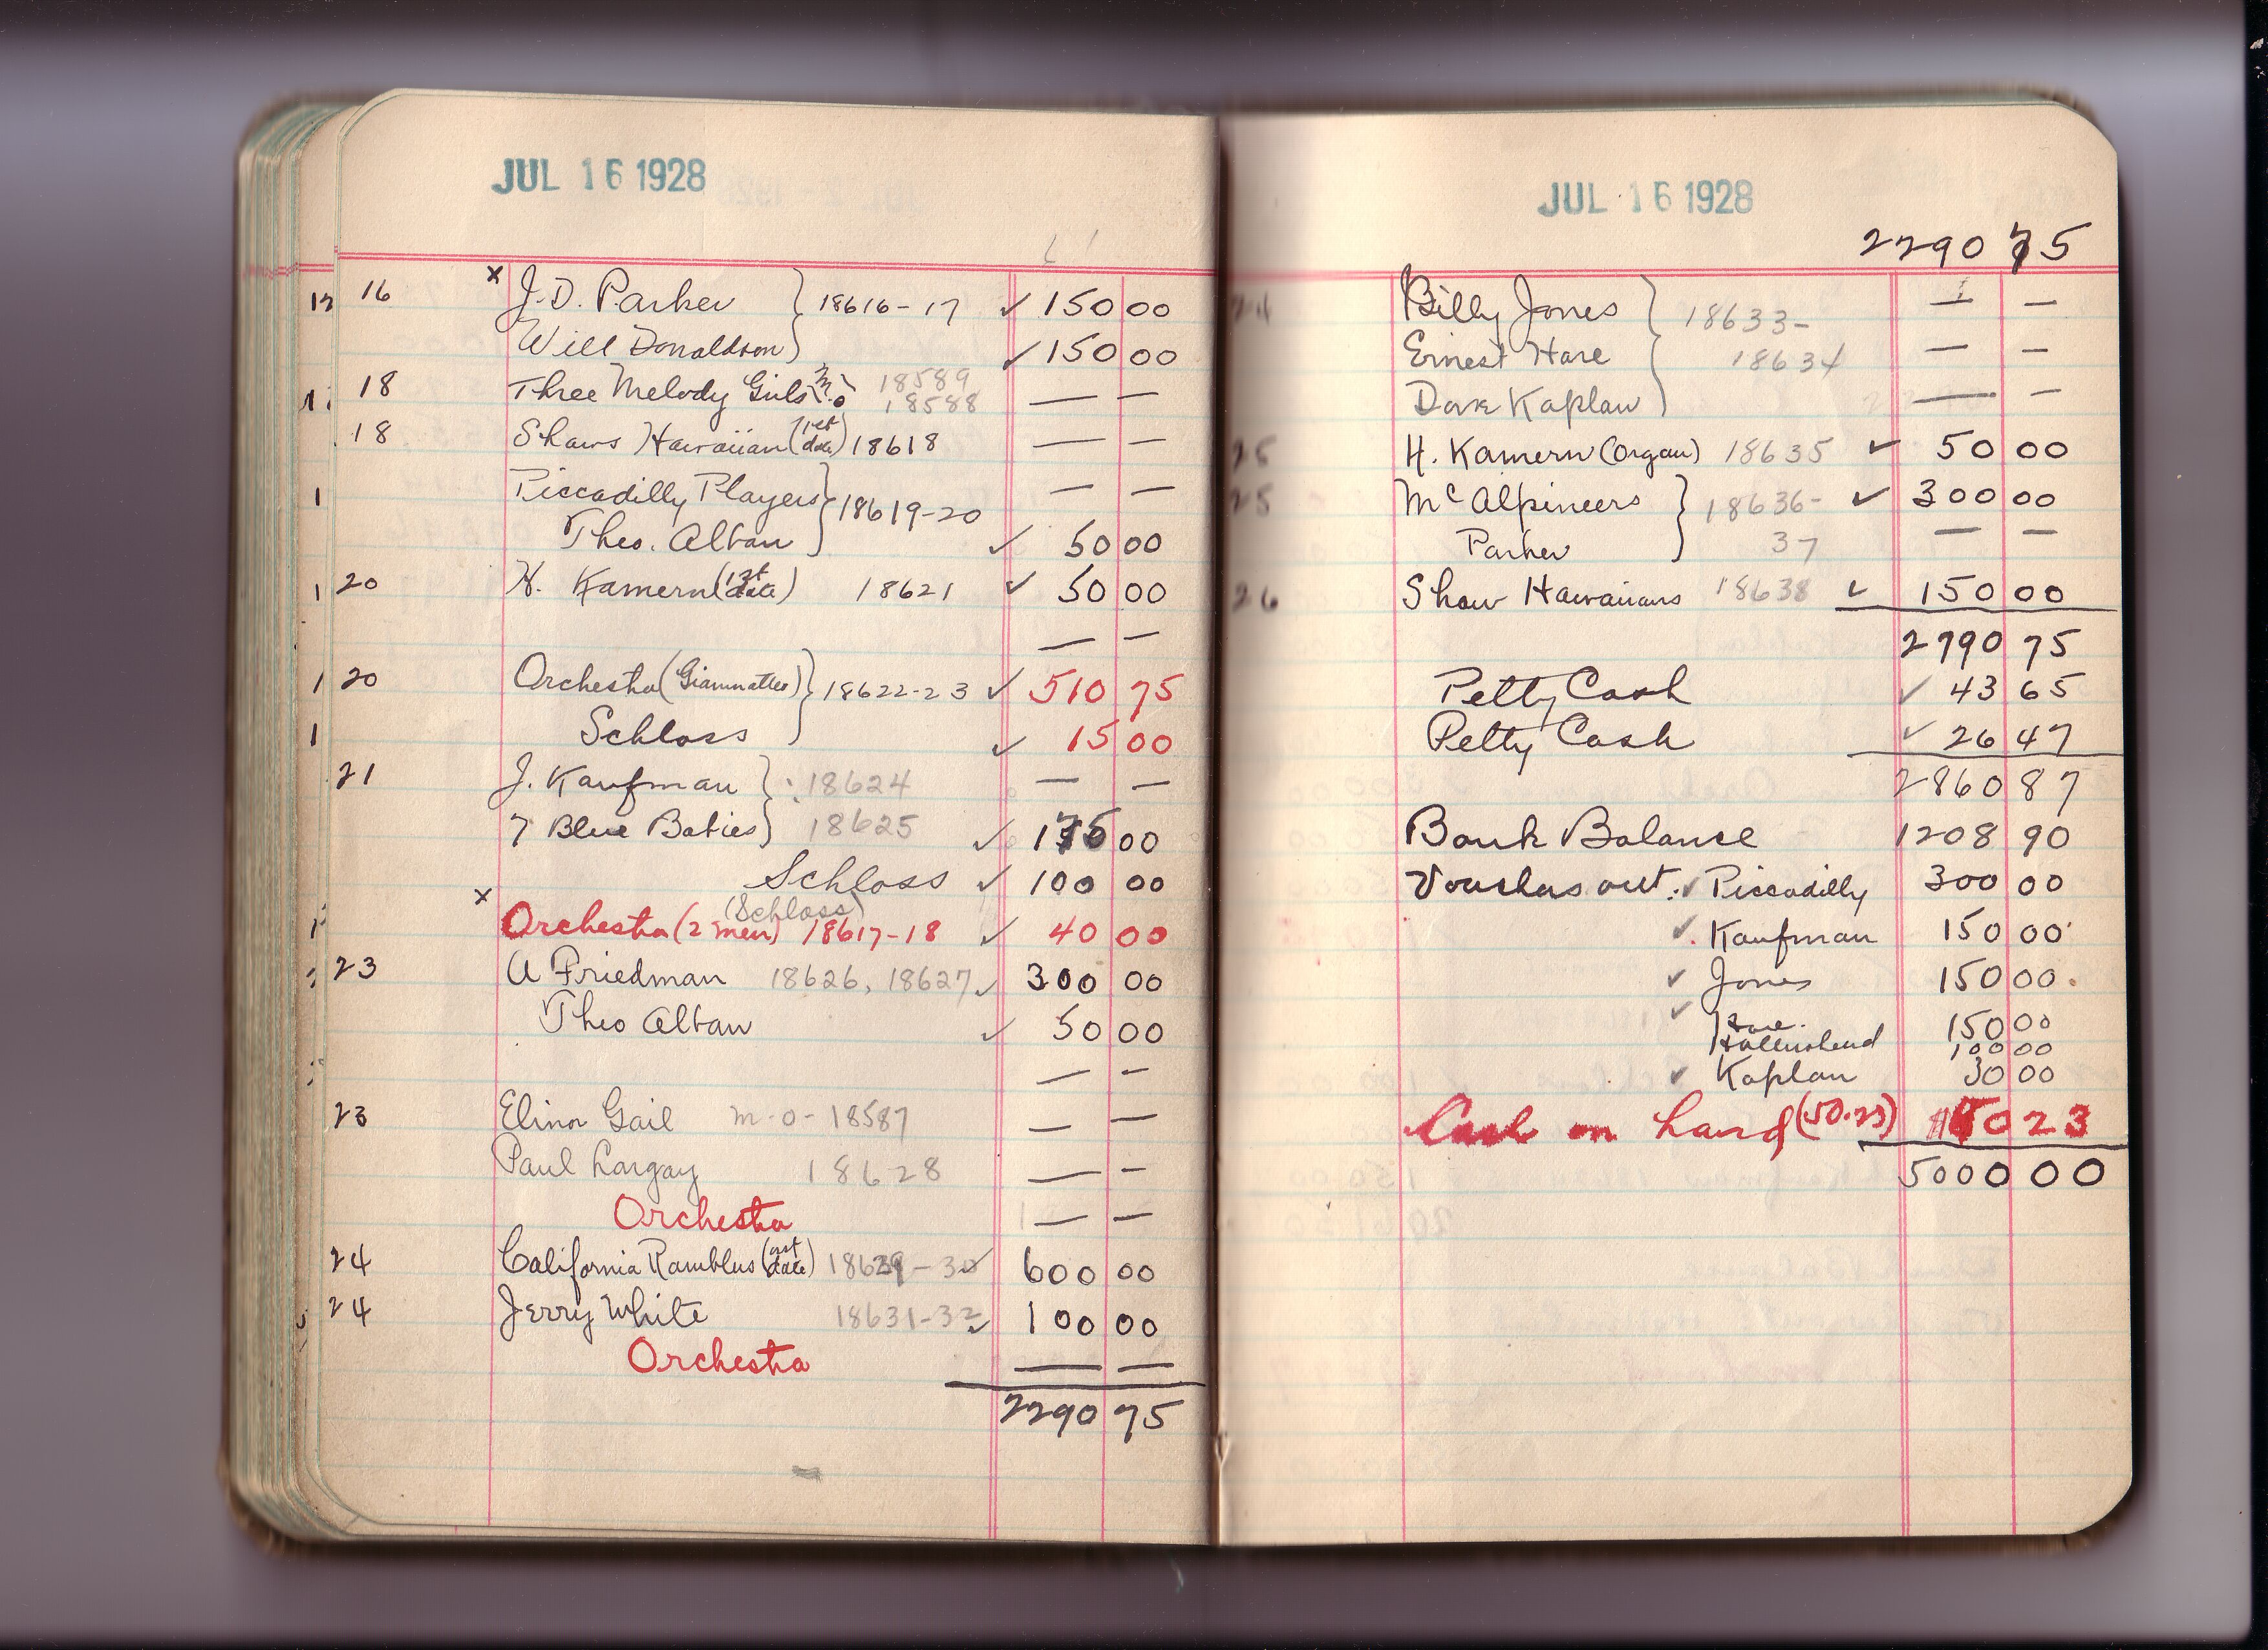 JUL 16 1928
16 x J.D. Parker } 18616-17 ✓ 150 00
Will Donaldson } ✓ 150 00
18 Three Melody Girls 18589
18588 — —
18 Shaws Hawaiian (1st date) 18618 — —
Piccadilly Players } 18619-20 — —
Theo. Alban } ✓ 50 00
20 H. Kamern (1st date) 18621 ✓ 50 00
— —
20 Orchestra (Giannattee) } 18622-23 ✓ 510 75
Schloss } ✓ 15 00
21 J. Kaufman } 18624 — —
7 Blue Babies } 18625 ✓ 175 00
Schloss ✓ 100 00
(Schloss)
x Orchestra (2 men) 18617-18 ✓ 40 00
23 A Friedman 18626, 18627 ✓ 300 00
Theo Alban ✓ 50 00
— —
23 Elinor Gail m-o- 18587 — —
Paul Largay 18628 — —
Orchestra — —
24 California Ramblers (1st date) 18629-30 ✓ 600 00
24 Jerry White 18631-32 ✓ 100 00
Orchestra — —
2290 75
JUL 16 1928
2290 75
24 Billy Jones } 18633- — —
Ernest Hare } 18634 — —
Dave Kaplan } — —
25 H. Kamern (Organ) 18635 ✓ 50 00
25 McAlpineers } 18636- ✓ 300 00
Parker } 37 — —
26 Shaw Hawaiians 18638 ✓ 150 00
2790 75
Petty Cash ✓ 43 65
Petty Cash ✓ 26 47
2860 87
Bank Balance 1208 90
Vouchers out: ✓ Piccadilly 300 00
✓ Kaufman 150 00
✓ Jones 150 00
✓ Hare 150 00
Hollinshead 100 00
✓ Kaplan 30 00
Cash on hand (50.23) 50 23
5000 00